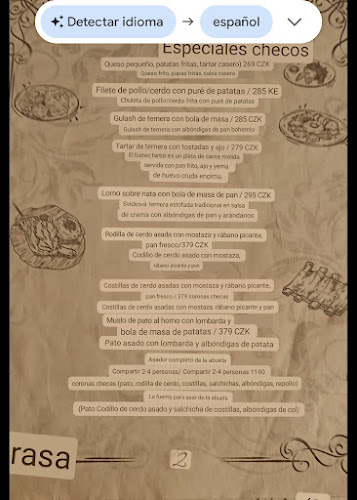 Detectar idioma → español
Especiales checos
Queso pequeño, patatas fritas, tartar casero) 269 CZK
Queso frito, papas fritas, salsa casera
Filete de pollo/cerdo con puré de patatas / 285 KE
Chuleta de pollo/cerdo frita con puré de patatas
Gulash de ternera con bola de masa / 285 CZK
Gulash de ternera con albóndigas de pan bohemio
Tartar de ternera con tostadas y ajo / 279 CZK
El bistec tartar es un plato de carne molida
servida con pan frito, ajo y yema
de huevo cruda encima.
Lomo sobre nata con bola de masa de pan / 295 CZK
Svickova: ternera estofada tradicional en salsa
de crema con albóndigas de pan y arándanos
Rodilla de cerdo asada con mostaza y rábano picante,
pan fresco/379 CZK
Codillo de cerdo asado con mostaza,
rábano picante y pan
Costillas de cerdo asadas con mostaza y rábano picante,
pan fresco / 379 coronas checas
Costillas de cerdo asadas con mostaza, rábano picante y pan
Muslo de pato al horno con lombarda y
bola de masa de patatas / 379 CZK
Pato asado con lombarda y albóndigas de patata
Asador completo de la abuela
Compartir 2-4 personas/ Compartir 2-4 personas 1190
coronas checas (pato, rodilla de cerdo, costillas, salchichas, albóndigas, repollo)
La fuente para asar de la abuela
(Pato Codillo de cerdo asado y salchicha de costillas, albóndigas de col)
rasa
2